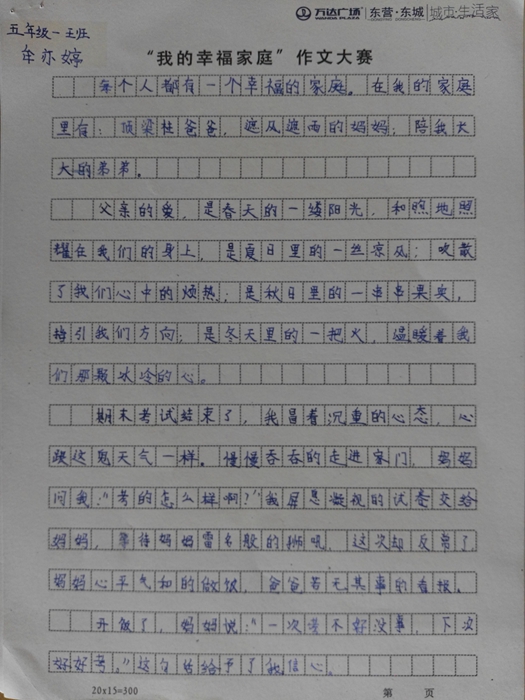 万达广场 WANDA PLAZA 东营·东城 城市·生活家
五年级一班
牟亦婷
“我的幸福家庭”作文大赛
每个人都有一个幸福的家庭。在我的家庭
里有：顶梁柱爸爸，遮风遮雨的妈妈；陪我长
大的弟弟。
父亲的爱，是春天的一缕阳光，和煦地照
耀在我们的身上，是夏日里的一丝凉风；吹散
了我们心中的烦热；是秋日里的一串串果实，
指引我们方向；是冬天里的一把火，温暖着我
们那颗冰冷的心。
期末考试结束了，我冒着沉重的心态，心
跟这鬼天气一样。慢慢吞吞的走进家门，妈妈
问我：“考的怎么样啊？”我屏息凝视的试卷交给
妈妈，等待妈妈雷名般的狮吼，这次却反常了
妈妈心平气和的做饭，爸爸若无其事的看报。
开饭了，妈妈说：“一次考不好没事，下次
好好考。”这句话给予了我信心。
20x15=300 第 页